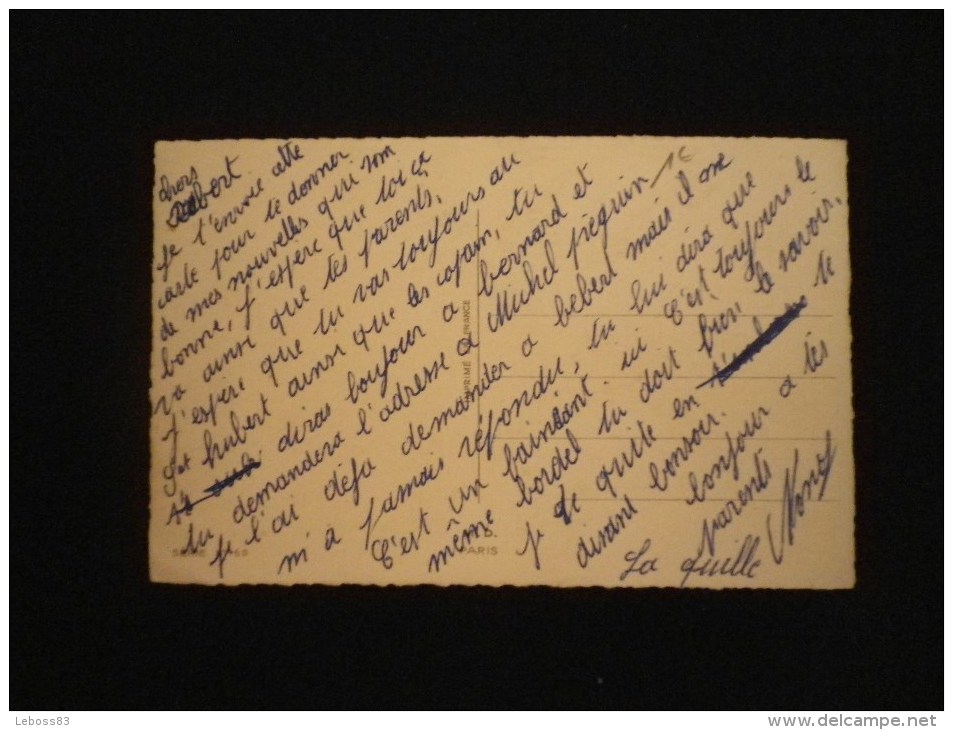 chers
Robert
je t'envoie cette
carte pour te donner
de mes nouvelles qui son
bonne, j'espère que toi ça
va ainsi que tes parents.
J'espère que tu vas toujours au
hubert ainsi que les copain, tu
diras bonjour a bernard et
tu demandera l'adresse a Michel piéguin
je l'ai déja demander a bebert mais il me
m'a jamais répondu, tu lui dira que
C'est un fainéant. C'est toujours le
même bordel tu doit bien le savoir.
je te quitte en te
disant bonsoir.
bonjour a tes
parents
La quille
1€
IMPRIMÉ FRANCE
PARIS
Leboss83
www.delcampe.net